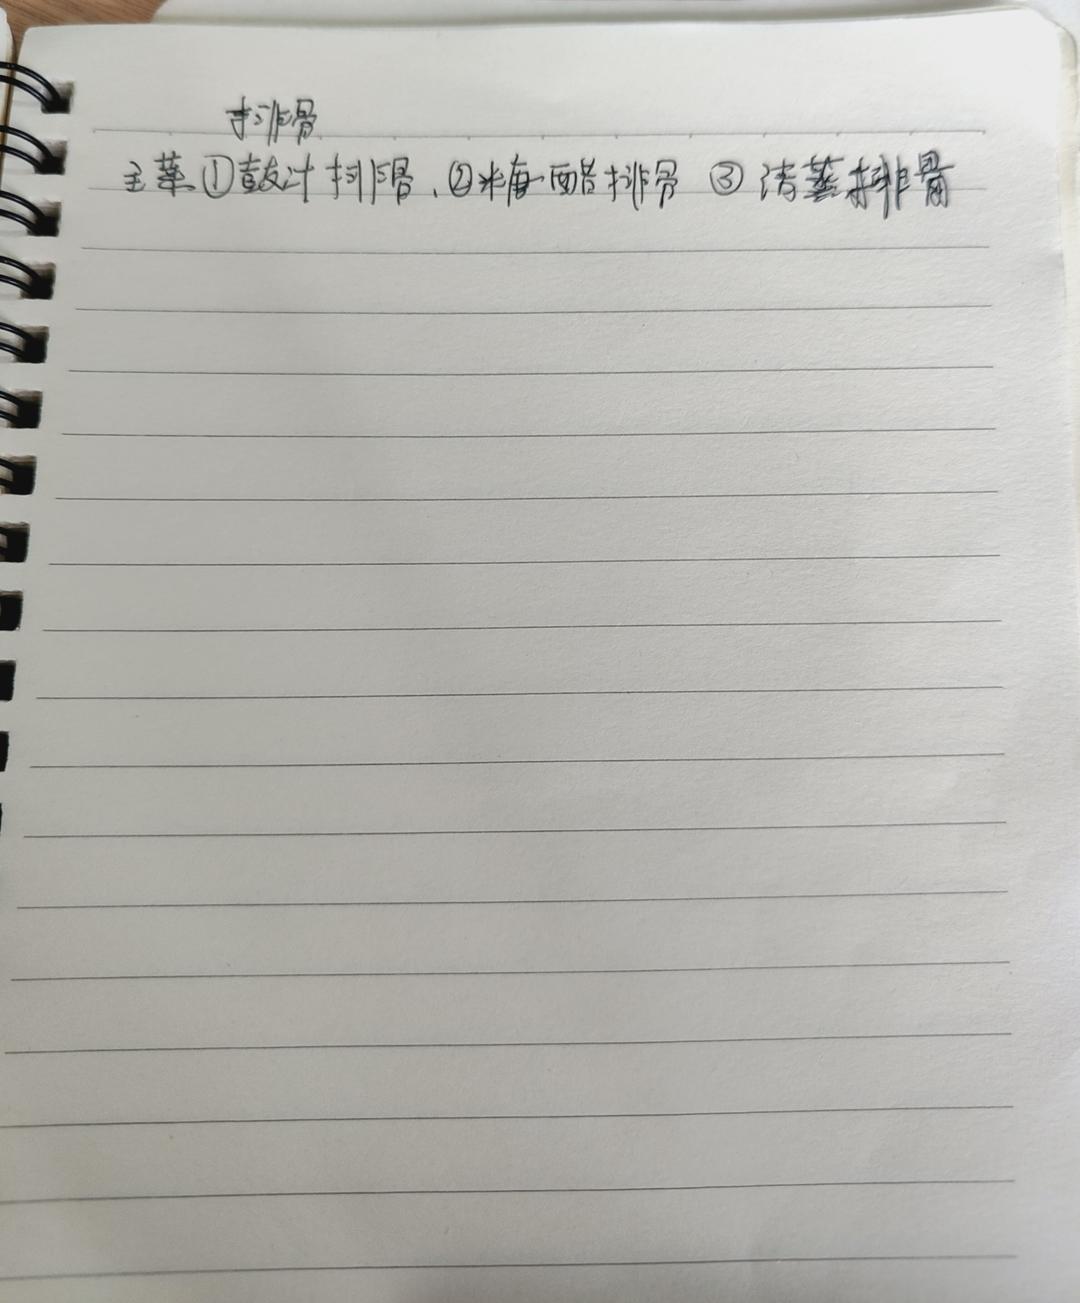 排骨
主菜①鼓汁排骨、②糖醋排骨 ③清蒸排骨